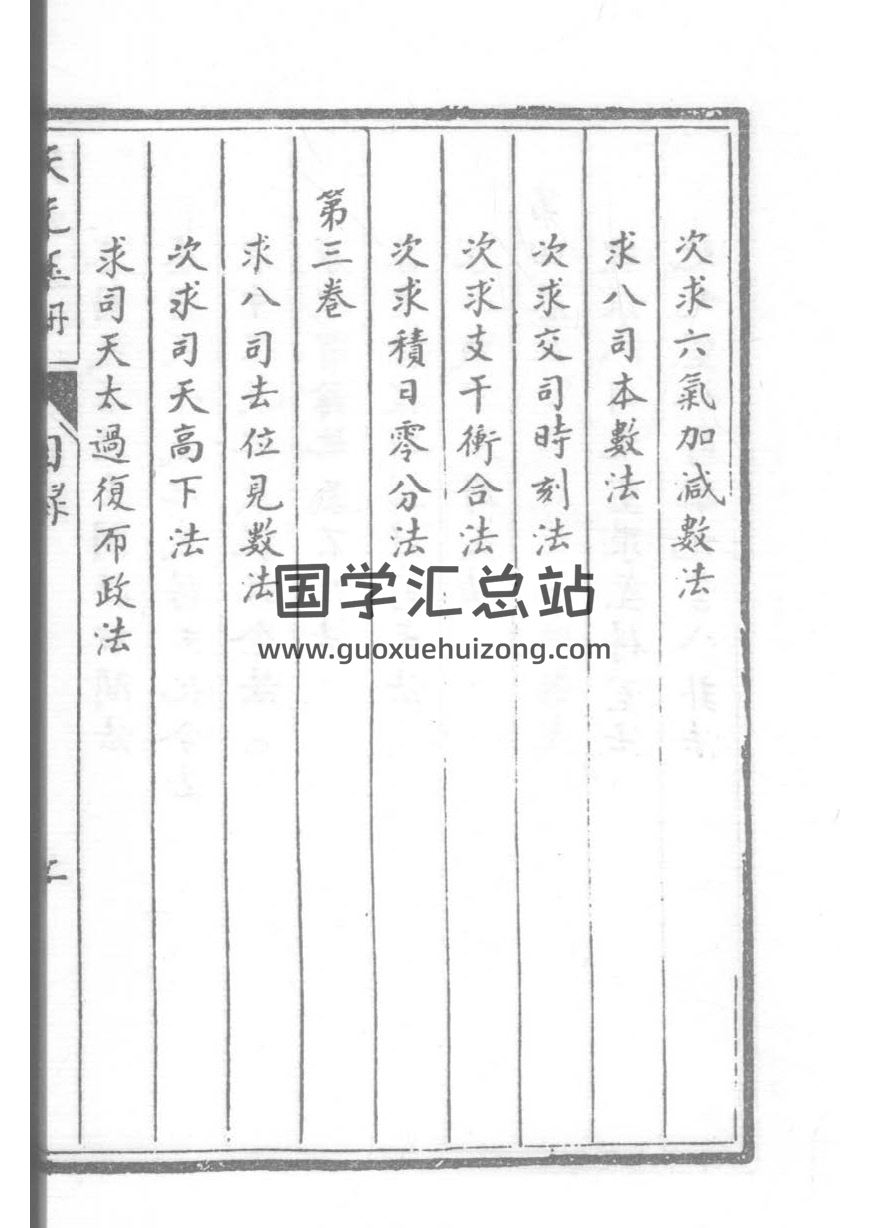 次求六氣加減數法
求八司本數法
次求交司時刻法
次求支干衝合法
次求積日零分法
第三卷
求八司去位見數法
次求司天高下法
求司天太過復布政法
目錄
国学汇总站
www.guoxuehuizong.com